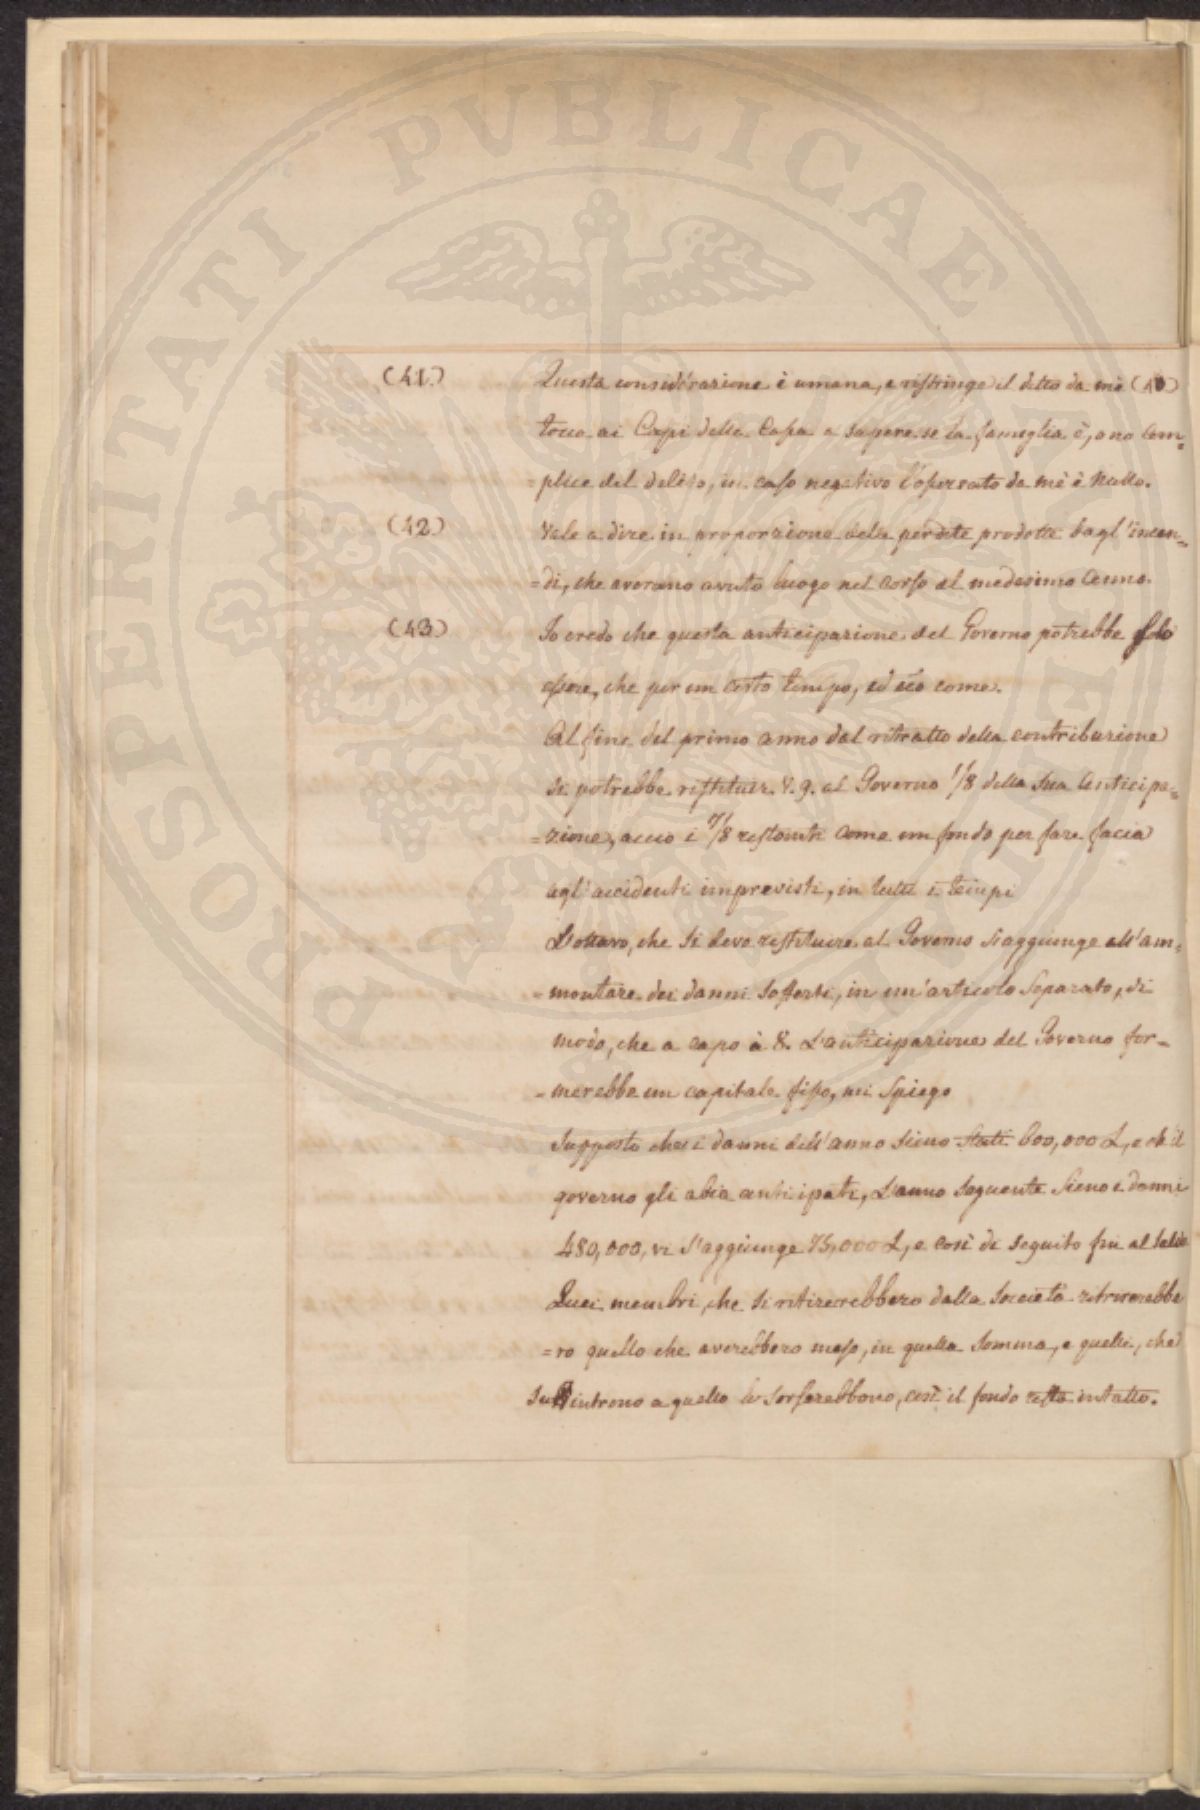 PROSPERITATI PVBLICAE AVGENDAE
(41.) Questa considerazione è umana, e ristringe il detto da mè (40)
tocca ai Capi della Casa a sapere se la fameglia è, o no Com=
=plice del delito, in caso negativo l'operato da mè è Nullo.
(42) Vale a dire in proporzione delle perdite prodotte dagl'incen=
=di, che averano avuto luogo nel corso al medesimo Anno.
(43) Io credo che questa anticipazione del Governo potrebbe solo
essere, che per un certo tempo, ed ecco come.
Al fine del primo anno dal ritratto della contribuzione
si potrebbe restituir v. g. al Governo 1/8 della sua Anticipa=
=zione, acciò i 7/8 restanti come un fondo per fare facia
agl'accidenti imprevisti, in tutti i tempi
L'ottavo, che si deve restituire al Governo s'aggiunge all'am=
=montare dei danni sofferti, in un'articolo separato, di
modo, che a capo à 8. L'anticipazione del Governo for=
=merebbe un capitale fisso, mi spiego
Supposto che i danni dell'anno sieno stati 600,000 L, e ch'il
governo gli abia anticipati, L'anno seguente sieno i danni
480,000, vi s'aggiunge 75,000 L, e così di seguito fin al
Quei membri, che si ritirerebbero dalla Società ritrverebbe
=ro quello che averebbero messo, in quella somma, e quelli, che
a quello lo così il fondo resta intatto.